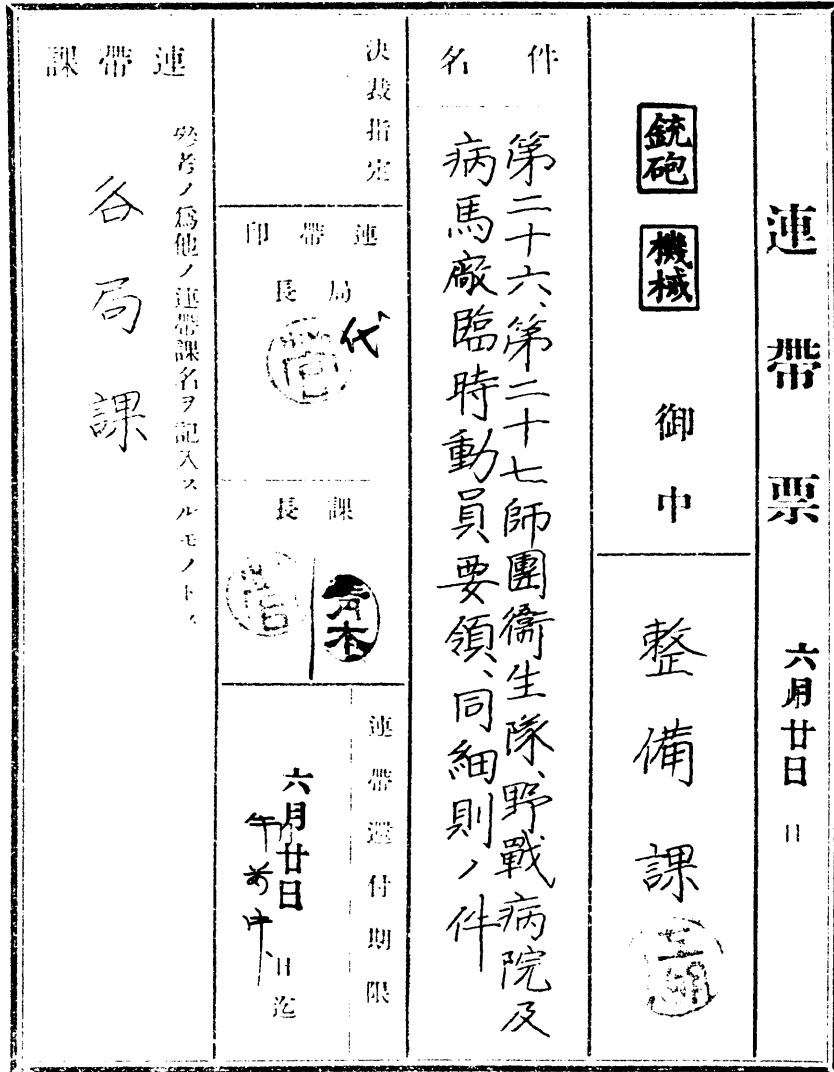 連帶票
六月廿日
日
銃砲 機械 御中
整備課
件名
第二十六、第二十七師團衞生隊、野戰病院及
病馬廠臨時動員要領、同細則ノ件
決裁指定
連帶印
局長
代
課長
青木
菅
連帶還付期限
六月廿日
午前中
日迄
連帶課
參考ノ爲他ノ連帶課名ヲ記入スルモノトス
各局課